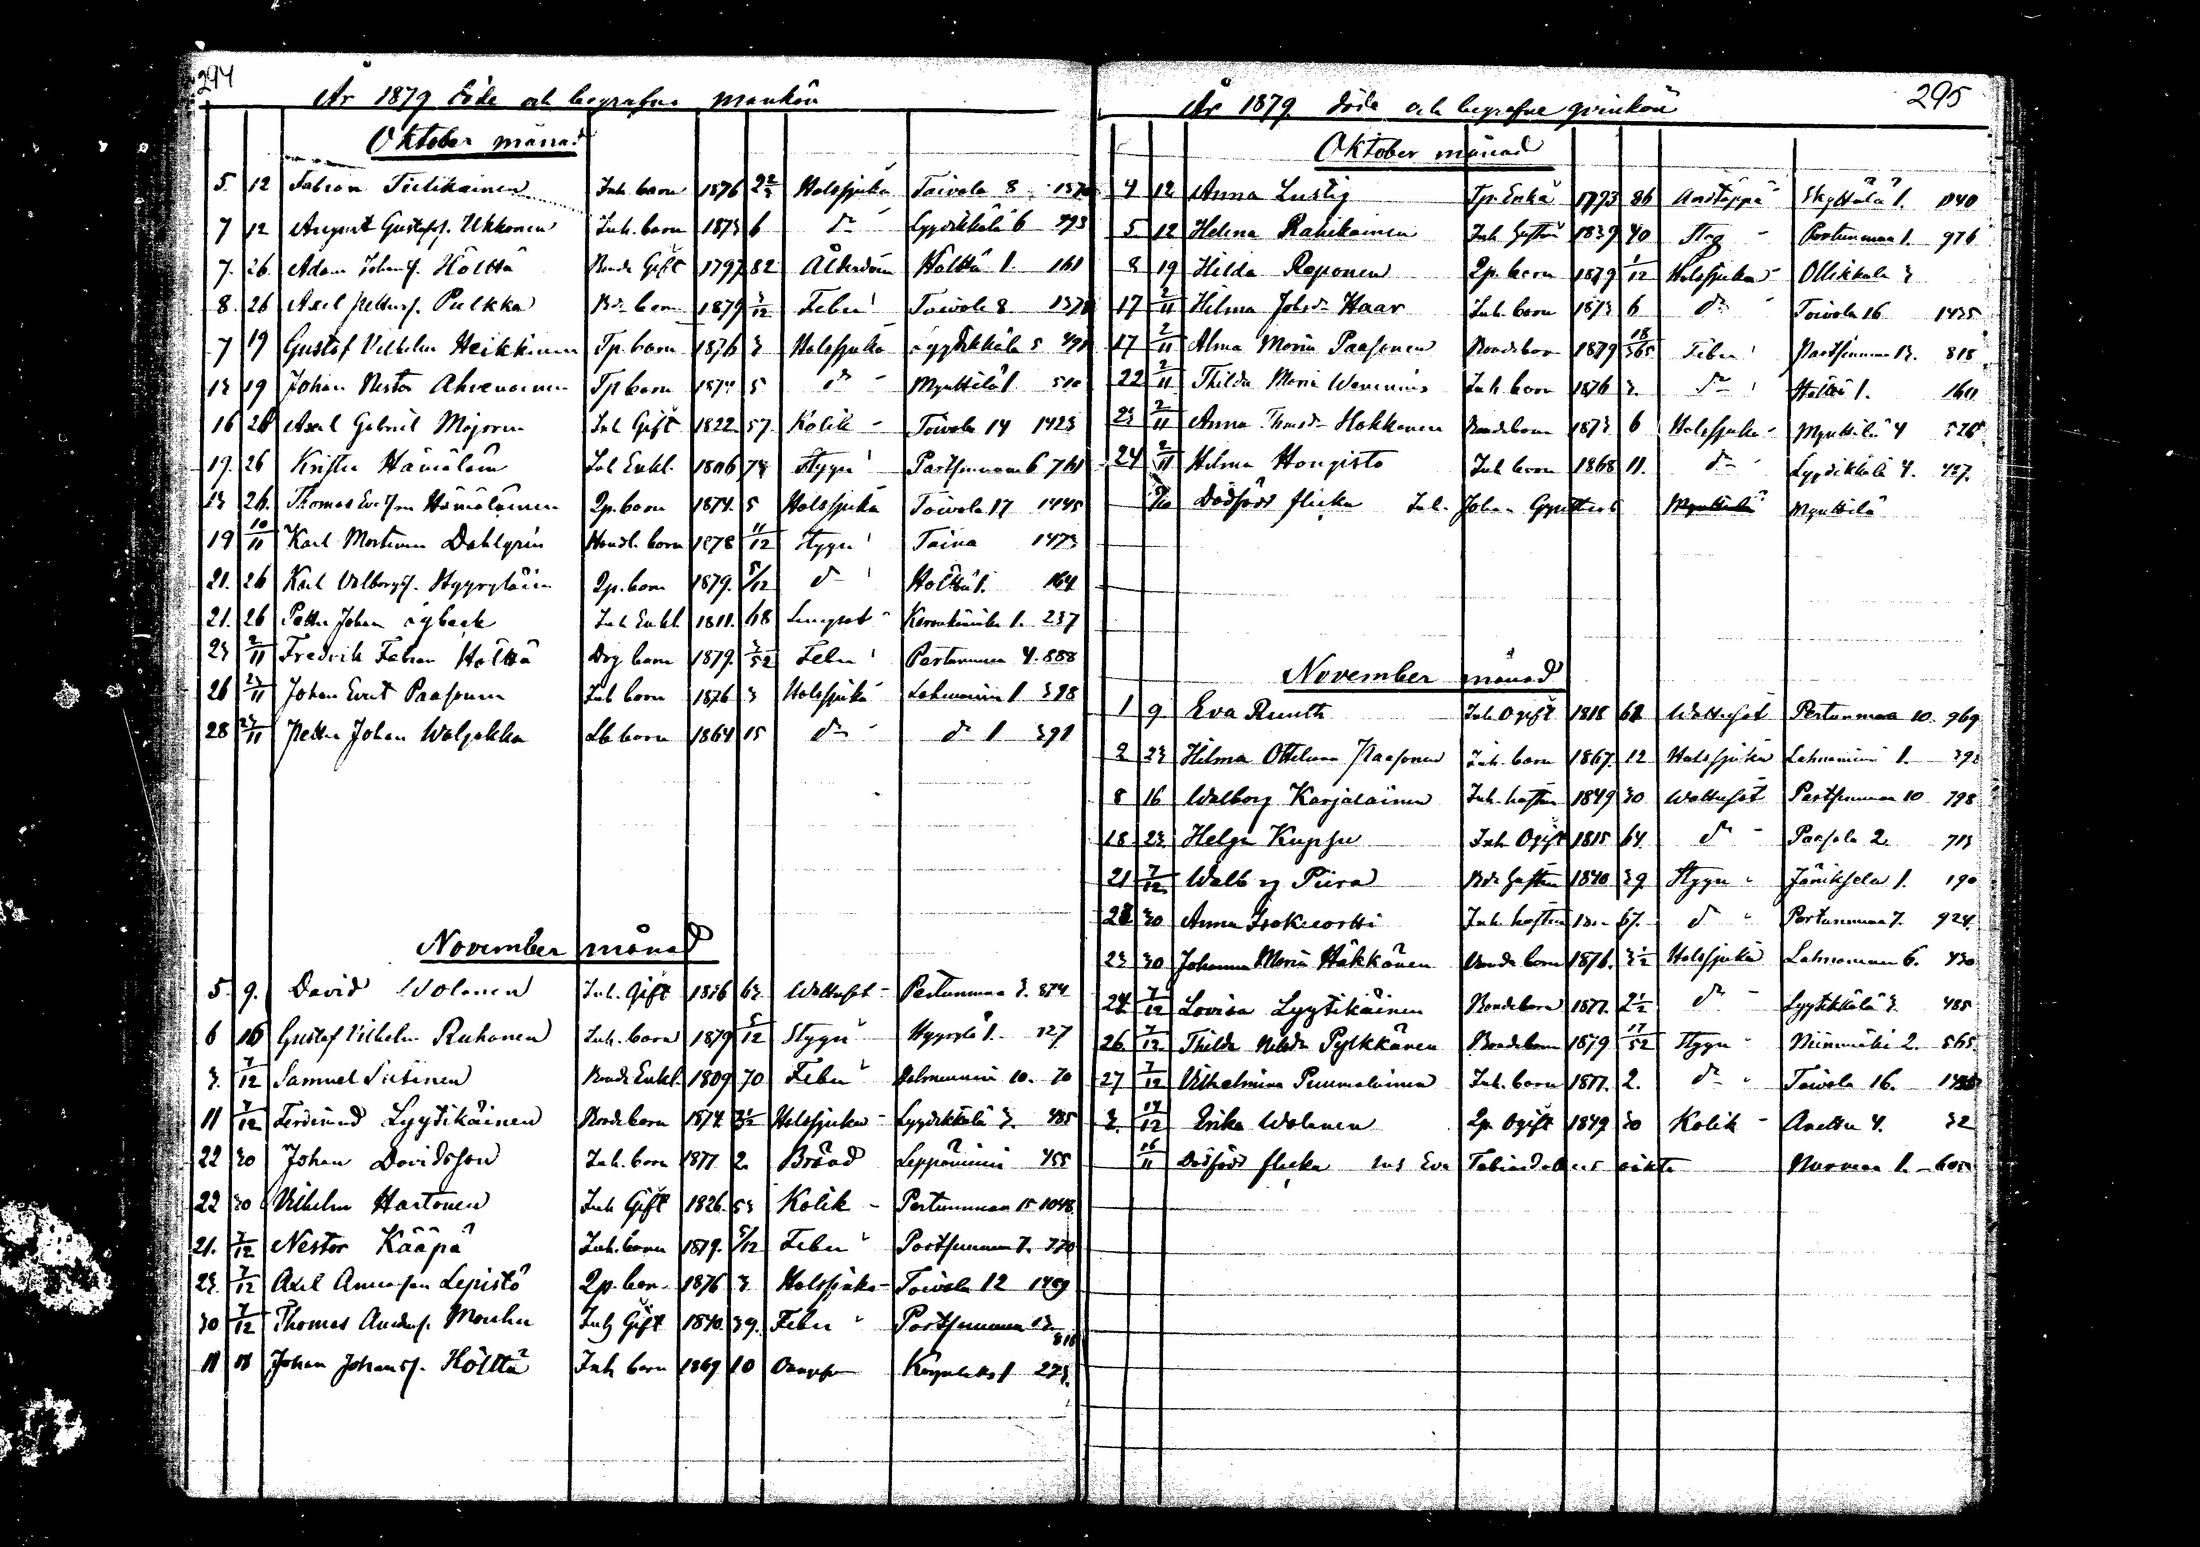 294
År 1879 döde och begrafne mankön
Oktober månad
5. 12 Fabian Tiilikainen Inh. barn 1876 2 2/3 Halssjuka Toivola 8
7 12 August Gustafss. Ukkonen Inh. barn 1873 6 do Lyydikkälä 6 493
7. 26 Adam Johanss. Hölttä Bonde Gift 1797 82 Ålderdom Hölttä 1. 161
8. 26 Axel Petterss. Pulkka Bde barn 1879 3/12 Feber Toivola 8.
7 19 Gustaf Vilhelm Heikkinen Tp. barn 1876 3 Halssjuka Lyydikkälä 5 491
13 19 Johan Nestor Ahvenainen Tp barn 1874 5 do Mynttilä 1. 510
16 26 Axel Gabriel Majoren Inh Gift 1822. 57. Kolik Toivola 14 1423
19. 26 Krister Hämäläin Inh Enkl. 1806 73 Stygn Partsimaa 6 761
13 26. Thomas Hämäläinen Lp. barn 1874. 5 Halssjuka Toivola 17 1445
19 10/11 Karl Mortimer Dahlgrén Handl. barn 1878 11/12 Stygn Taina 1473
21. 26 Karl Valborgss. Hyyryläin Lp. barn 1879. 5/12 do Hölttä 1. 164
21. 26 Petter Johan Nyback Inh Enkl. 1811. 68 Lungsot 1. 237
23 2/11 Fredrik Fabian Hölttä Drg barn 1879. 3/52 Feber Pertunmaa 4. 888
26 23/11 Johan Evert Paasonen Inh barn 1876 3 Halssjuka Lahnaniemi 1 398
28 23/11 Petter Johan Waljakka Lb barn 1864 15 do do 1 391
November månad
5. 9. David Wolanen Inh. Gift 1816 63. Wattusot Pertunmaa 3. 874
6 16 Gustaf Vilhelm Ruhanen Inh. barn 1879 5/12 Stygn Hyyrylä 1. 127
3. 7/12 Samuel Siisinen Bonde Enkl. 1809 70 Feber 10. 70
11 7/12 Ferdinand Lyytikäinen Bonde barn 1874 Halssjuka Lyydikkälä 3. 485
22 30 Johan Davidsson Inh. barn 1877 2. Bråd Leppäniemi 455
22 30 Vilhelm Hartonen Inh Gift 1826. 53 Kolik Pertunmaa 15 1048
21. 7/12 Nestor Kääpä Inh. barn 1879. 5/12 Feber Partsimaa 7. 770
23. 7/12 Axel Lepistö Lp. barn 1876 3 Halssjuka Toivola 12 1409
30 7/12 Thomas Andersss. Inh Gift 1840. 39. Feber Partsimaa 13. 818
11 18 Johan Johanss. Hölttä Inh barn 1869 10 1 273.
295
År 1879. döde och begrafne qvinkön
Oktober månad
4 12 Anna Lustig Tp. Enka 1793 86 Andtäppa Skyttälä 1. 1140
5 12 Helena Rahikainen Inh Hustru 1839 40 Slag Pertunmaa 1. 976
8 19 Hilda Reponen Lp. barn 1879 1/12 Halssjuka Ollikkala 3
17 2/11 Hilma Johsdr Haar Inh. barn 1873 6 do Toivola 16 1435
17 2/11 Alma Maria Paasonen Bonde barn 1879 18/365 Feber Partsimaa 13. 818
22 2/11 Thilda Maria Inh. barn 1876 3. do Hölttä 1. 160
23 2/11 Anna Thomsdr Hokkanen Bonde barn 1873. 6 Halssjuka Mynttilä 4 526
24 2/11 Hilma Hongisto Inh barn 1868 11. do Lyydikkälä 4. 487.
Dödfödd flicka Inh. Johan Mynttilä Mynttilä
November månad
1 9 Eva Ruuth Inh. Ogift 1818 Wattusot Pertunmaa 10. 969
2 23 Hilma Ottiliana Paasonen Inh. barn 1867. 12 Halssjuka Lahnaniemi 1. 392
8 16 Walborg Karjalainen Inh. hustru 1849 30 Wattusot Partsimaa 10 798
18 23. Helga Kuppu Inh. Ogift 1815 64. do Paasola 2. 713
21 7/12 Walborg Piira Bde Hustru 1840 39. Stygn 1. 190
28 30 Anna Isokuortti Inh. hustru 67. do Pertunmaa 7. 924.
23 30 Johanna Maria Häkkänen Bonde barn 1876. 3 1/2 Halssjuka Lahnaniemi 6. 430
24 7/12 Lovisa Lyytikäinen Bonde barn 1877. 2 1/2 do Lyytikkälä 3. 485
26. 7/12 Thilda Pylkkänen Bonde barn 1879 17/52 Stygn Niinimäki 2. 565.
27 7/12 Vilhelmina Puumalainen Inh. barn 1877. 2. do Toivola 16.
3. 14/12 Erika Wolanen Lp. Ogift 1849 30 Kolik 4. 32
16/11 Dödfödd flicka Inh Eva Tobiasd. oäkta 1.